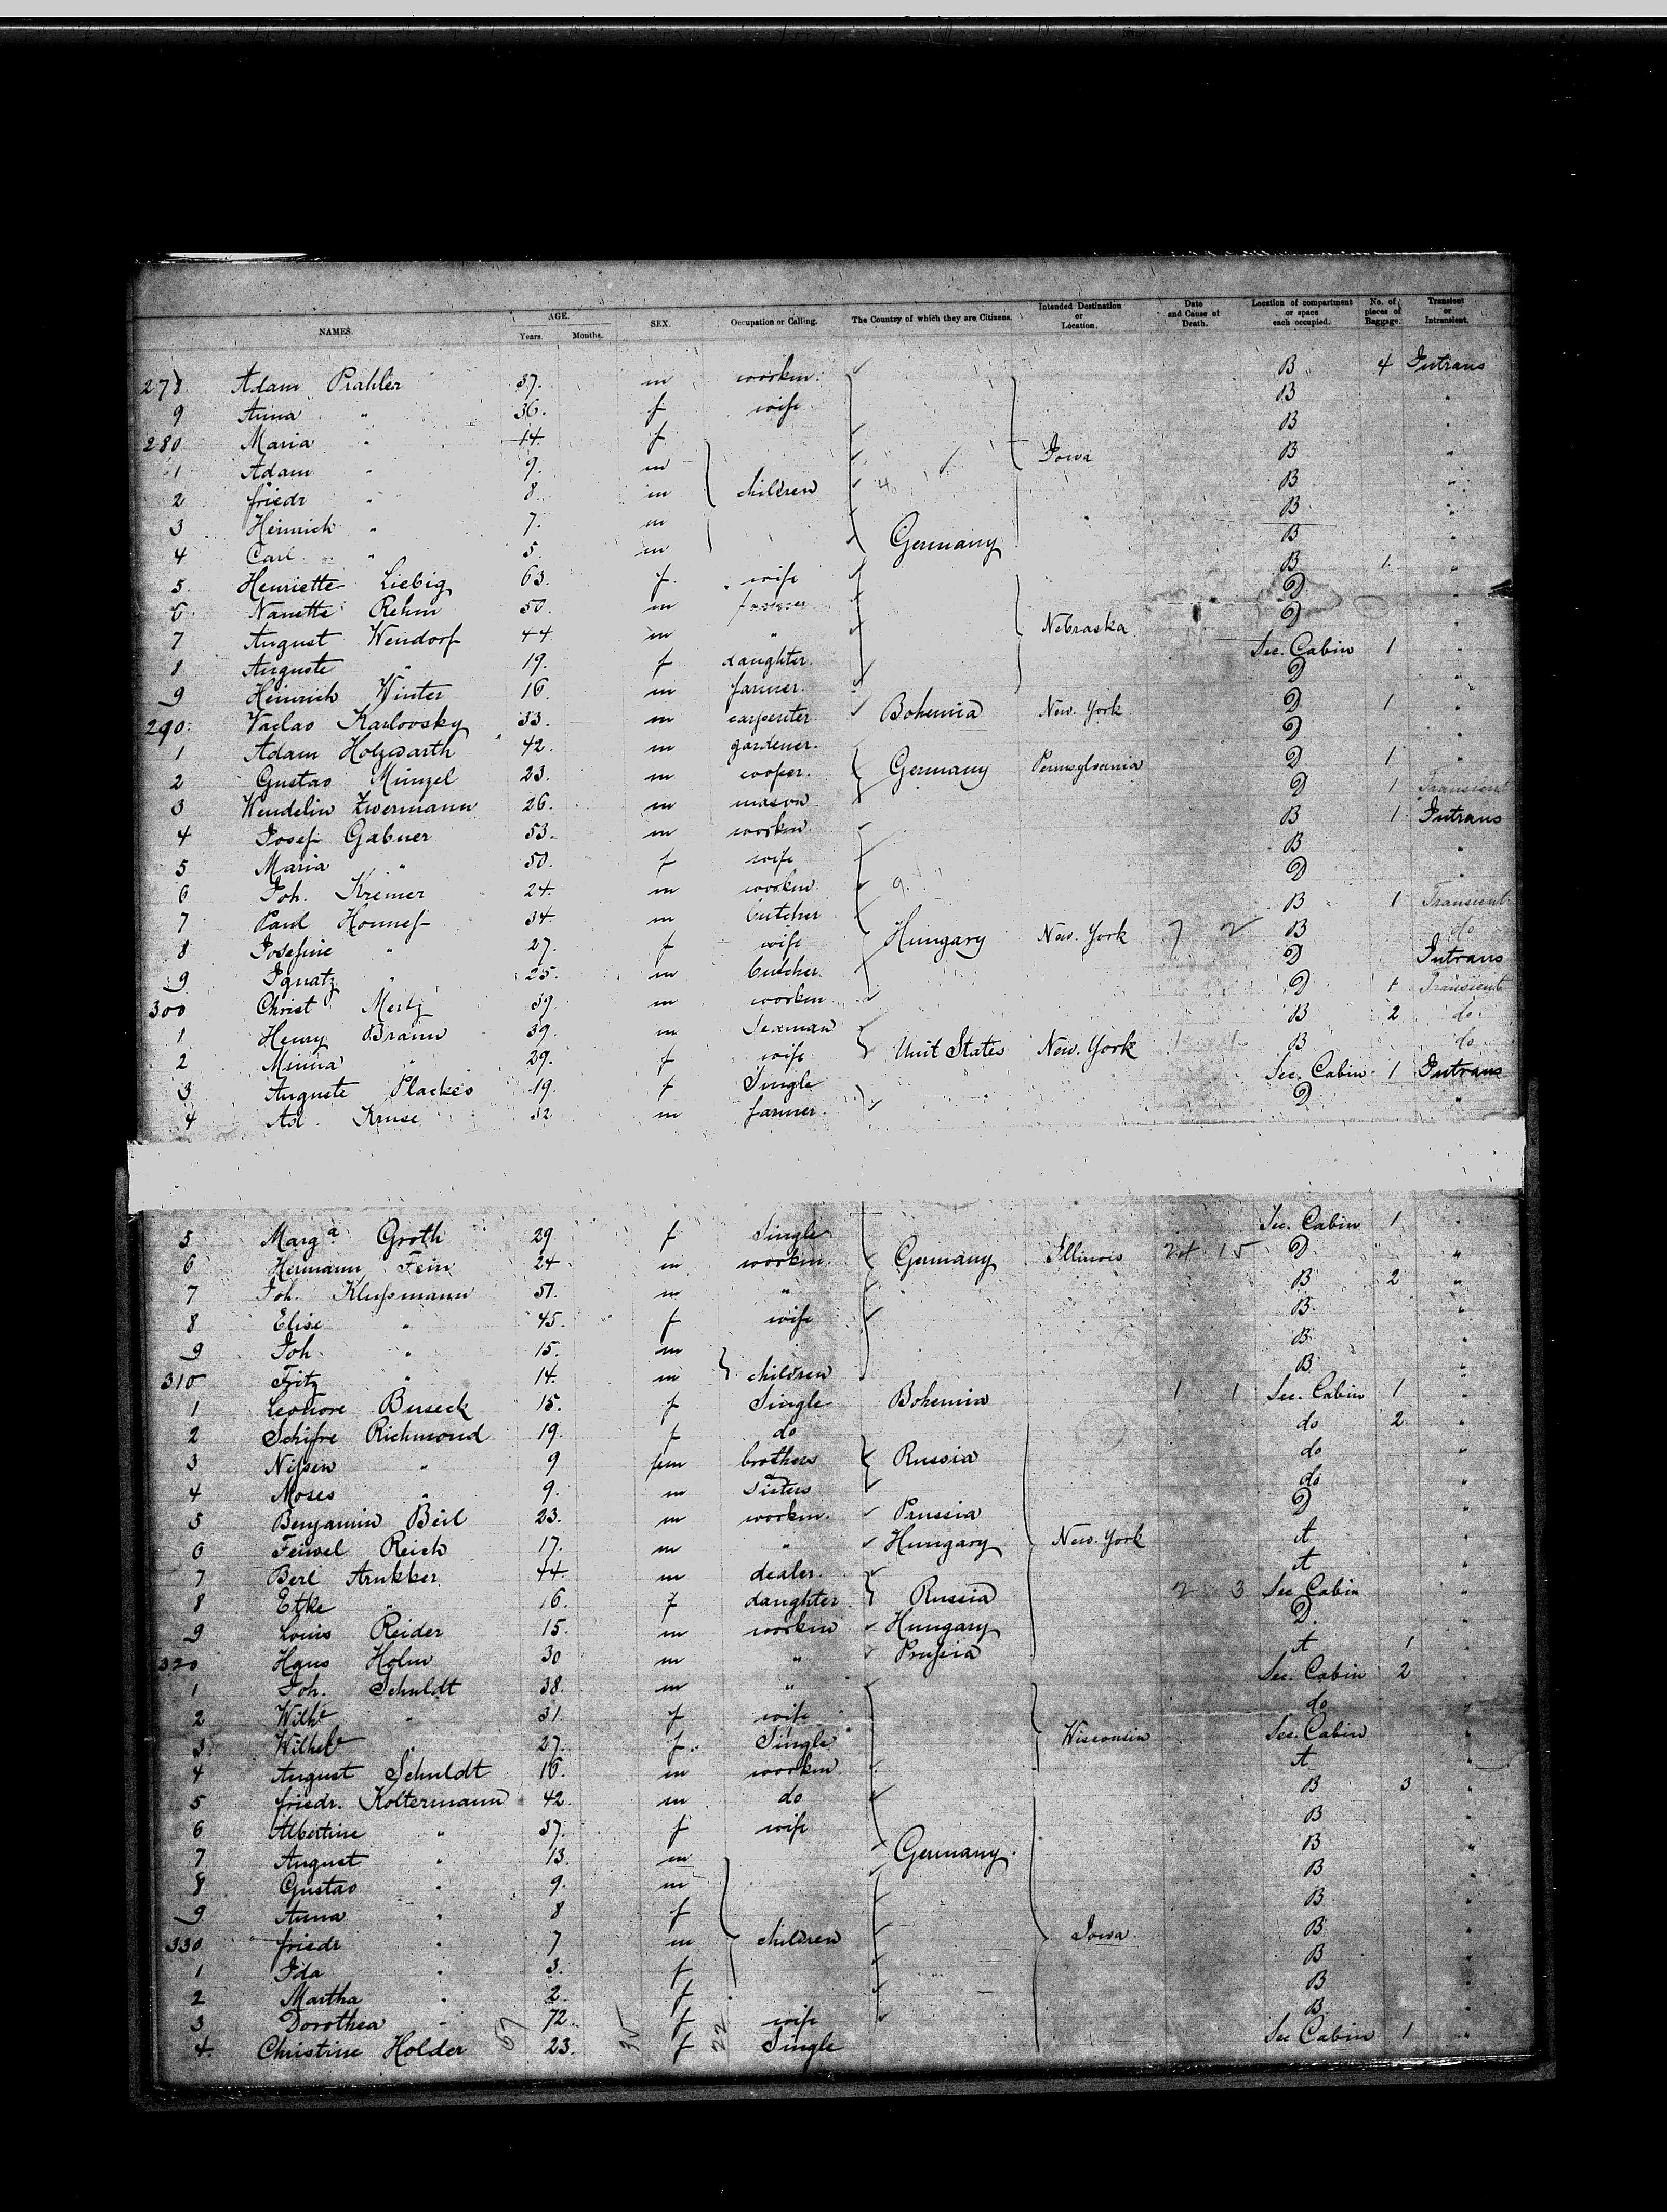 NAMES. AGE. Years. Months. SEX. Occupation or Calling. The Country of which they are Citizens. Intended Destination or Location. Date and Cause of Death. Location of compartment or space each occupied. No. of pieces of Baggage. Transient or Intransient.
278 Adam Prahler 37. m workm. B 4 Intrans
9 Anna " 36. f wife B "
280 Maria " 14 f B "
1 Adam " 9. m Iowa B "
2 friedr " 8. m children B "
3 Heinrich " 7. m B "
4 Carl " 5. m Germany B "
5. Henriette Liebig 63. f. wife B 1 "
6. Nanette Rehm 50. m D
7 August Wendorf 44. m " Nebraska D "
8 Auguste " 19. f daughter. Sec. Cabin 1 "
9 Heinrich Winter 16. m farmer. D "
290. Vaclav Karlovsky 33. m carpenter Bohemia New. York D 1 "
1 Adam Holzwarth 42. m gardener. D "
2 Gustav Munzel 23. m cooper. Germany Pennsylvania D 1 "
3 Wendelin Zwermann 26. m mason D 1 Transient
4 Josef Gabner 53. m workm B 1 Intrans
5 Maria " 50. f wife B "
6 Joh. Kremer 24. m workm. D "
7 Paul Honnef 34. m butcher B 1 Transient
8 Josefine " 27. f wife Hungary New. York 7 2 B do
9 Ignatz " 25. m butcher. D Intrans
300 Christ Mertz 39. m workm D 1 Transient
1 Henry Braun 39. m B 2 do.
2 Minna " 29. f wife Unit States New. York B do
3 Auguste 19. f Single Sec. Cabin 1 Intrans
4 Ad. Kruse 32 m farmer. D "
5 Marga Groth 29 f Single Sec. Cabin 1 "
6 Hermann Fein 24 m workm. Germany Illinois 15 D "
7 Joh. Klußmann 51. m " B 2 "
8 Elise " 45. f wife B. "
9 Joh. " 15. m B "
310 Fritz " 14. m children B. "
1 Leonore Buseck 15. f Single Bohemia 1 1 Sec. Cabin 1 "
2 Schifre Richmond 19. f do do 2 "
3 Nißen " 9 fem brothers Russia do "
4 Moses " 9. m Sisters do "
5 Benjamin Beil 23. m workm. Prussia D "
6 Feiwel Reich 17. m " Hungary New. York A "
7 Berl Arukker 44. m dealer. A "
8 Etke " 16. f daughter Russia 2 3 Sec Cabin "
9 Louis Reider 15. m workm Hungary D. "
320 Hans Holm 30 m " Prußia A 1 "
1 Joh. Schuldt 38. m " Sec. Cabin 2 "
2 Wilhe " 31. f wife do "
3. " 27. f. Single Wisconsin Sec. Cabin "
4 August Schuldt 16. m workm. A "
5 friedr. Koltermann 42. m do B 3 "
6 Albertine " 37. f wife B "
7 August " 13. m Germany. B "
8 Gustav " 9. m B "
9 Anna " 8 f B "
330 friedr " 7 m children Iowa B "
1 Ida " 3. f B "
2 Martha " 2. f B "
3 Dorothea " 72. f wife B. "
4. Christine Holder 67 23. 25 f 22 Single Sec Cabin 1 "